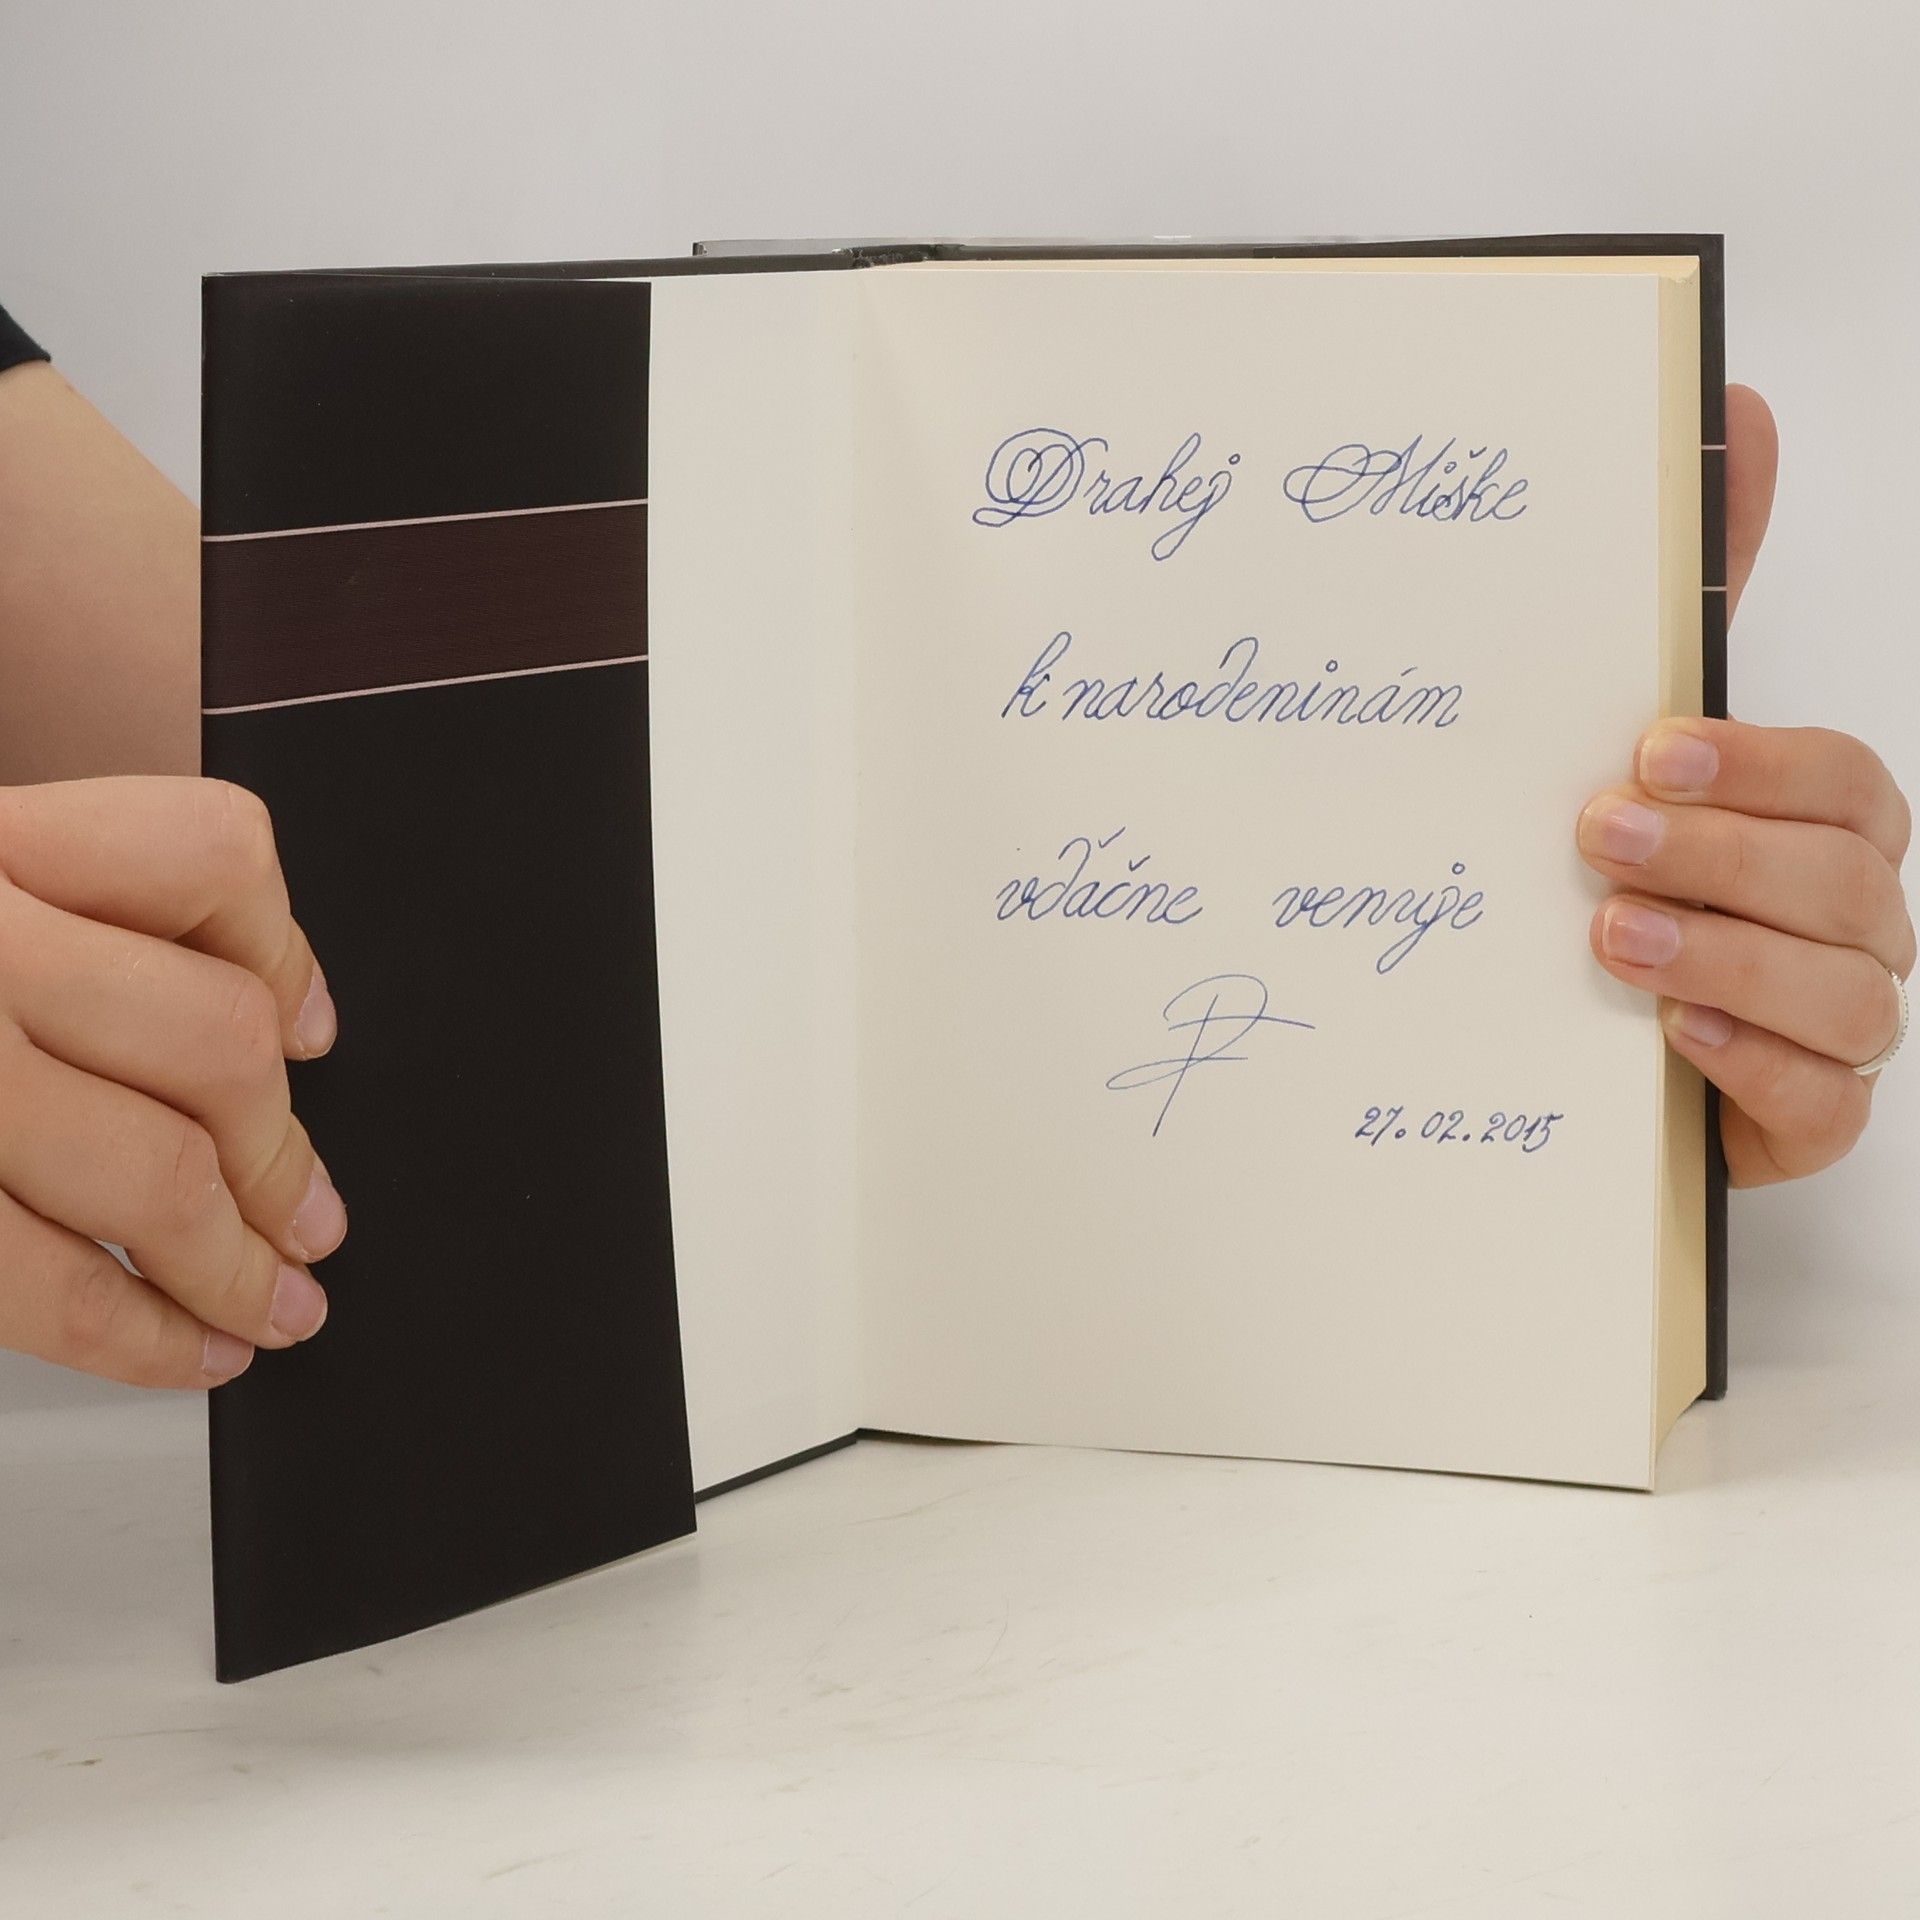 Drahej Miške
k narodeninám
vďačne venuje
27.02.2015